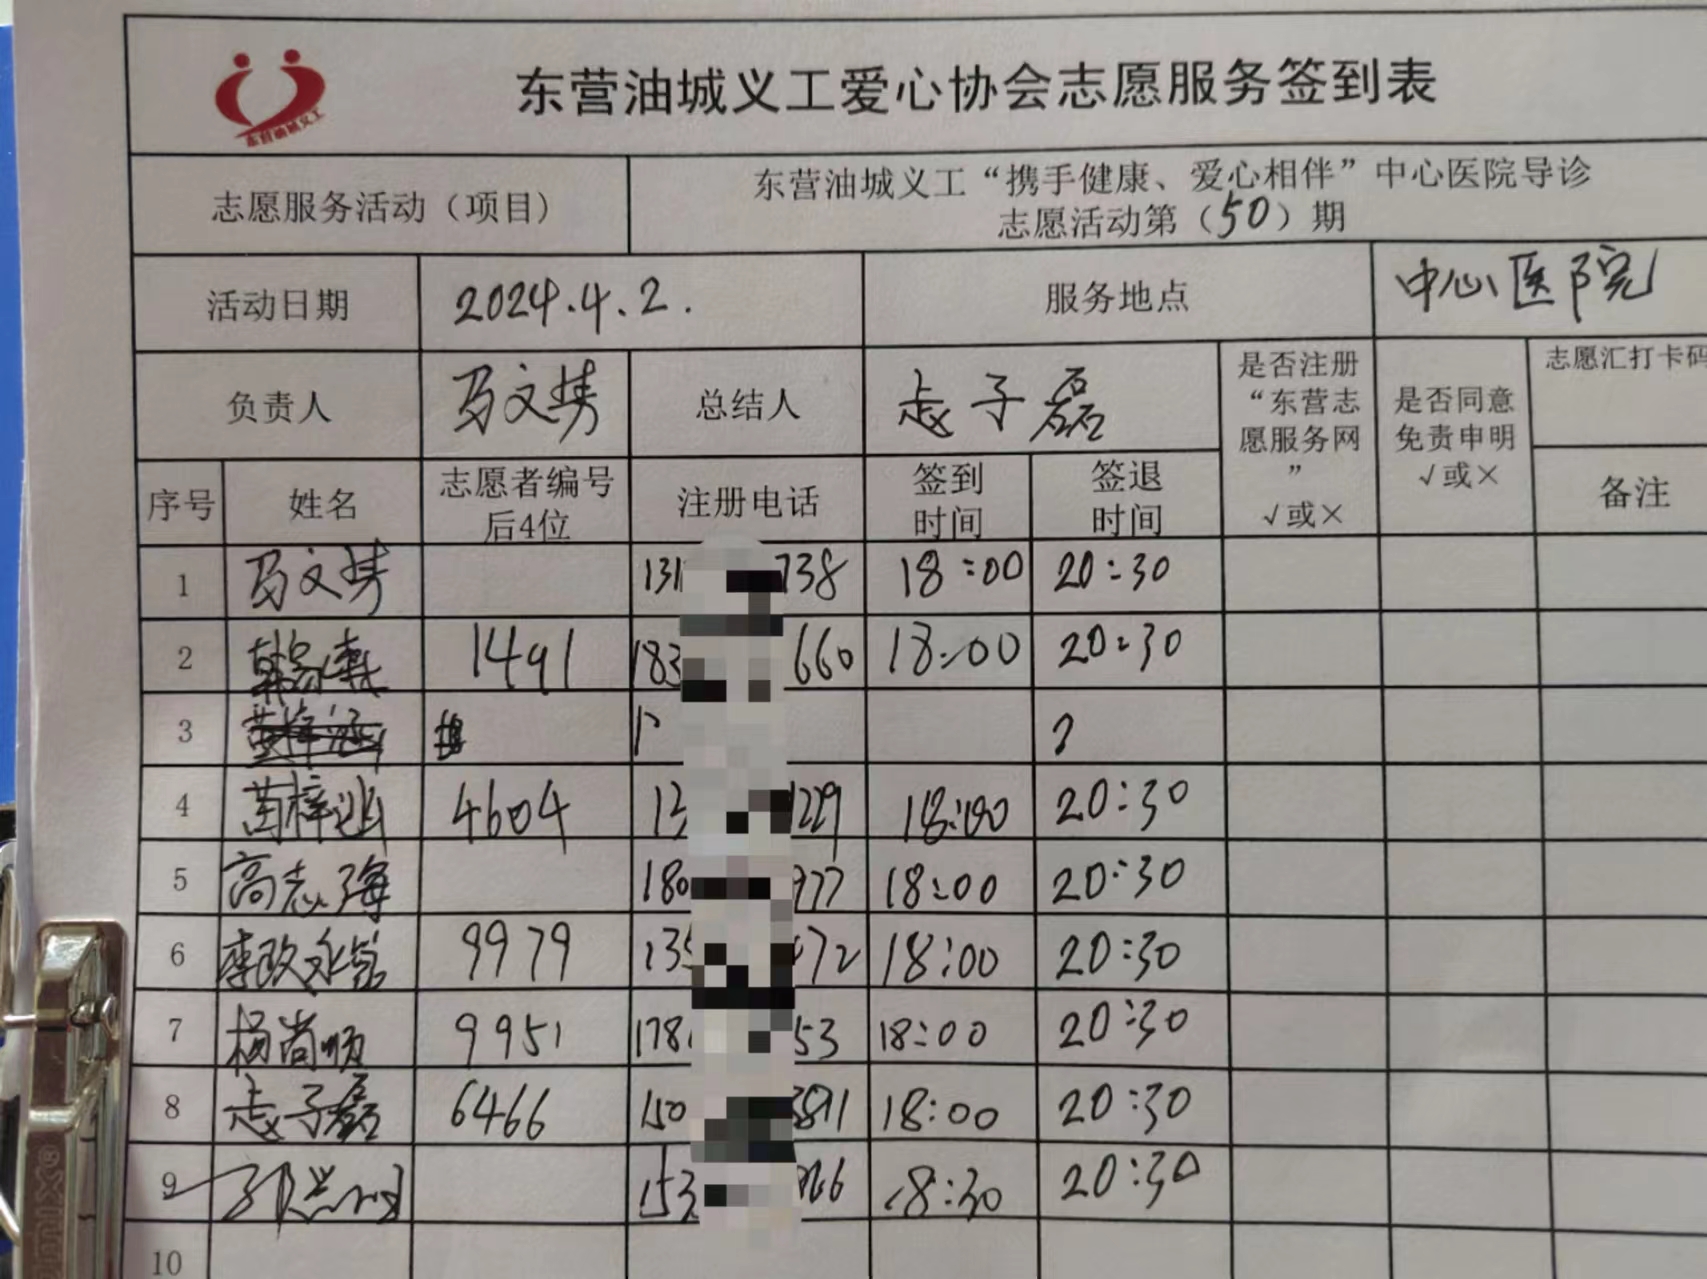 东营油城义工
东营油城义工爱心协会志愿服务签到表
志愿服务活动（项目） 东营油城义工“携手健康、爱心相伴”中心医院导诊
志愿活动第（50）期
活动日期 2024.4.2. 服务地点 中心医院
负责人 马文 总结人 子磊 是否注册
“东营志
愿服务网
”
√或× 是否同意
免责申明
√或× 志愿汇打卡码
序号 姓名 志愿者编号
后4位 注册电话 签到
时间 签退
时间 备注
1 马文 131 738 18:00 20:30
2 1491 183 660 18:00 20:30
3
4 苗梓 4604 229 18:00 20:30
5 高志海 180 977 18:00 20:30
6 李政 9979 135 72 18:00 20:30
7 杨尚顺 9951 178 53 18:00 20:30
8 子磊 6466 150 3811 18:00 20:30
9 153 66 18:30 20:30
10